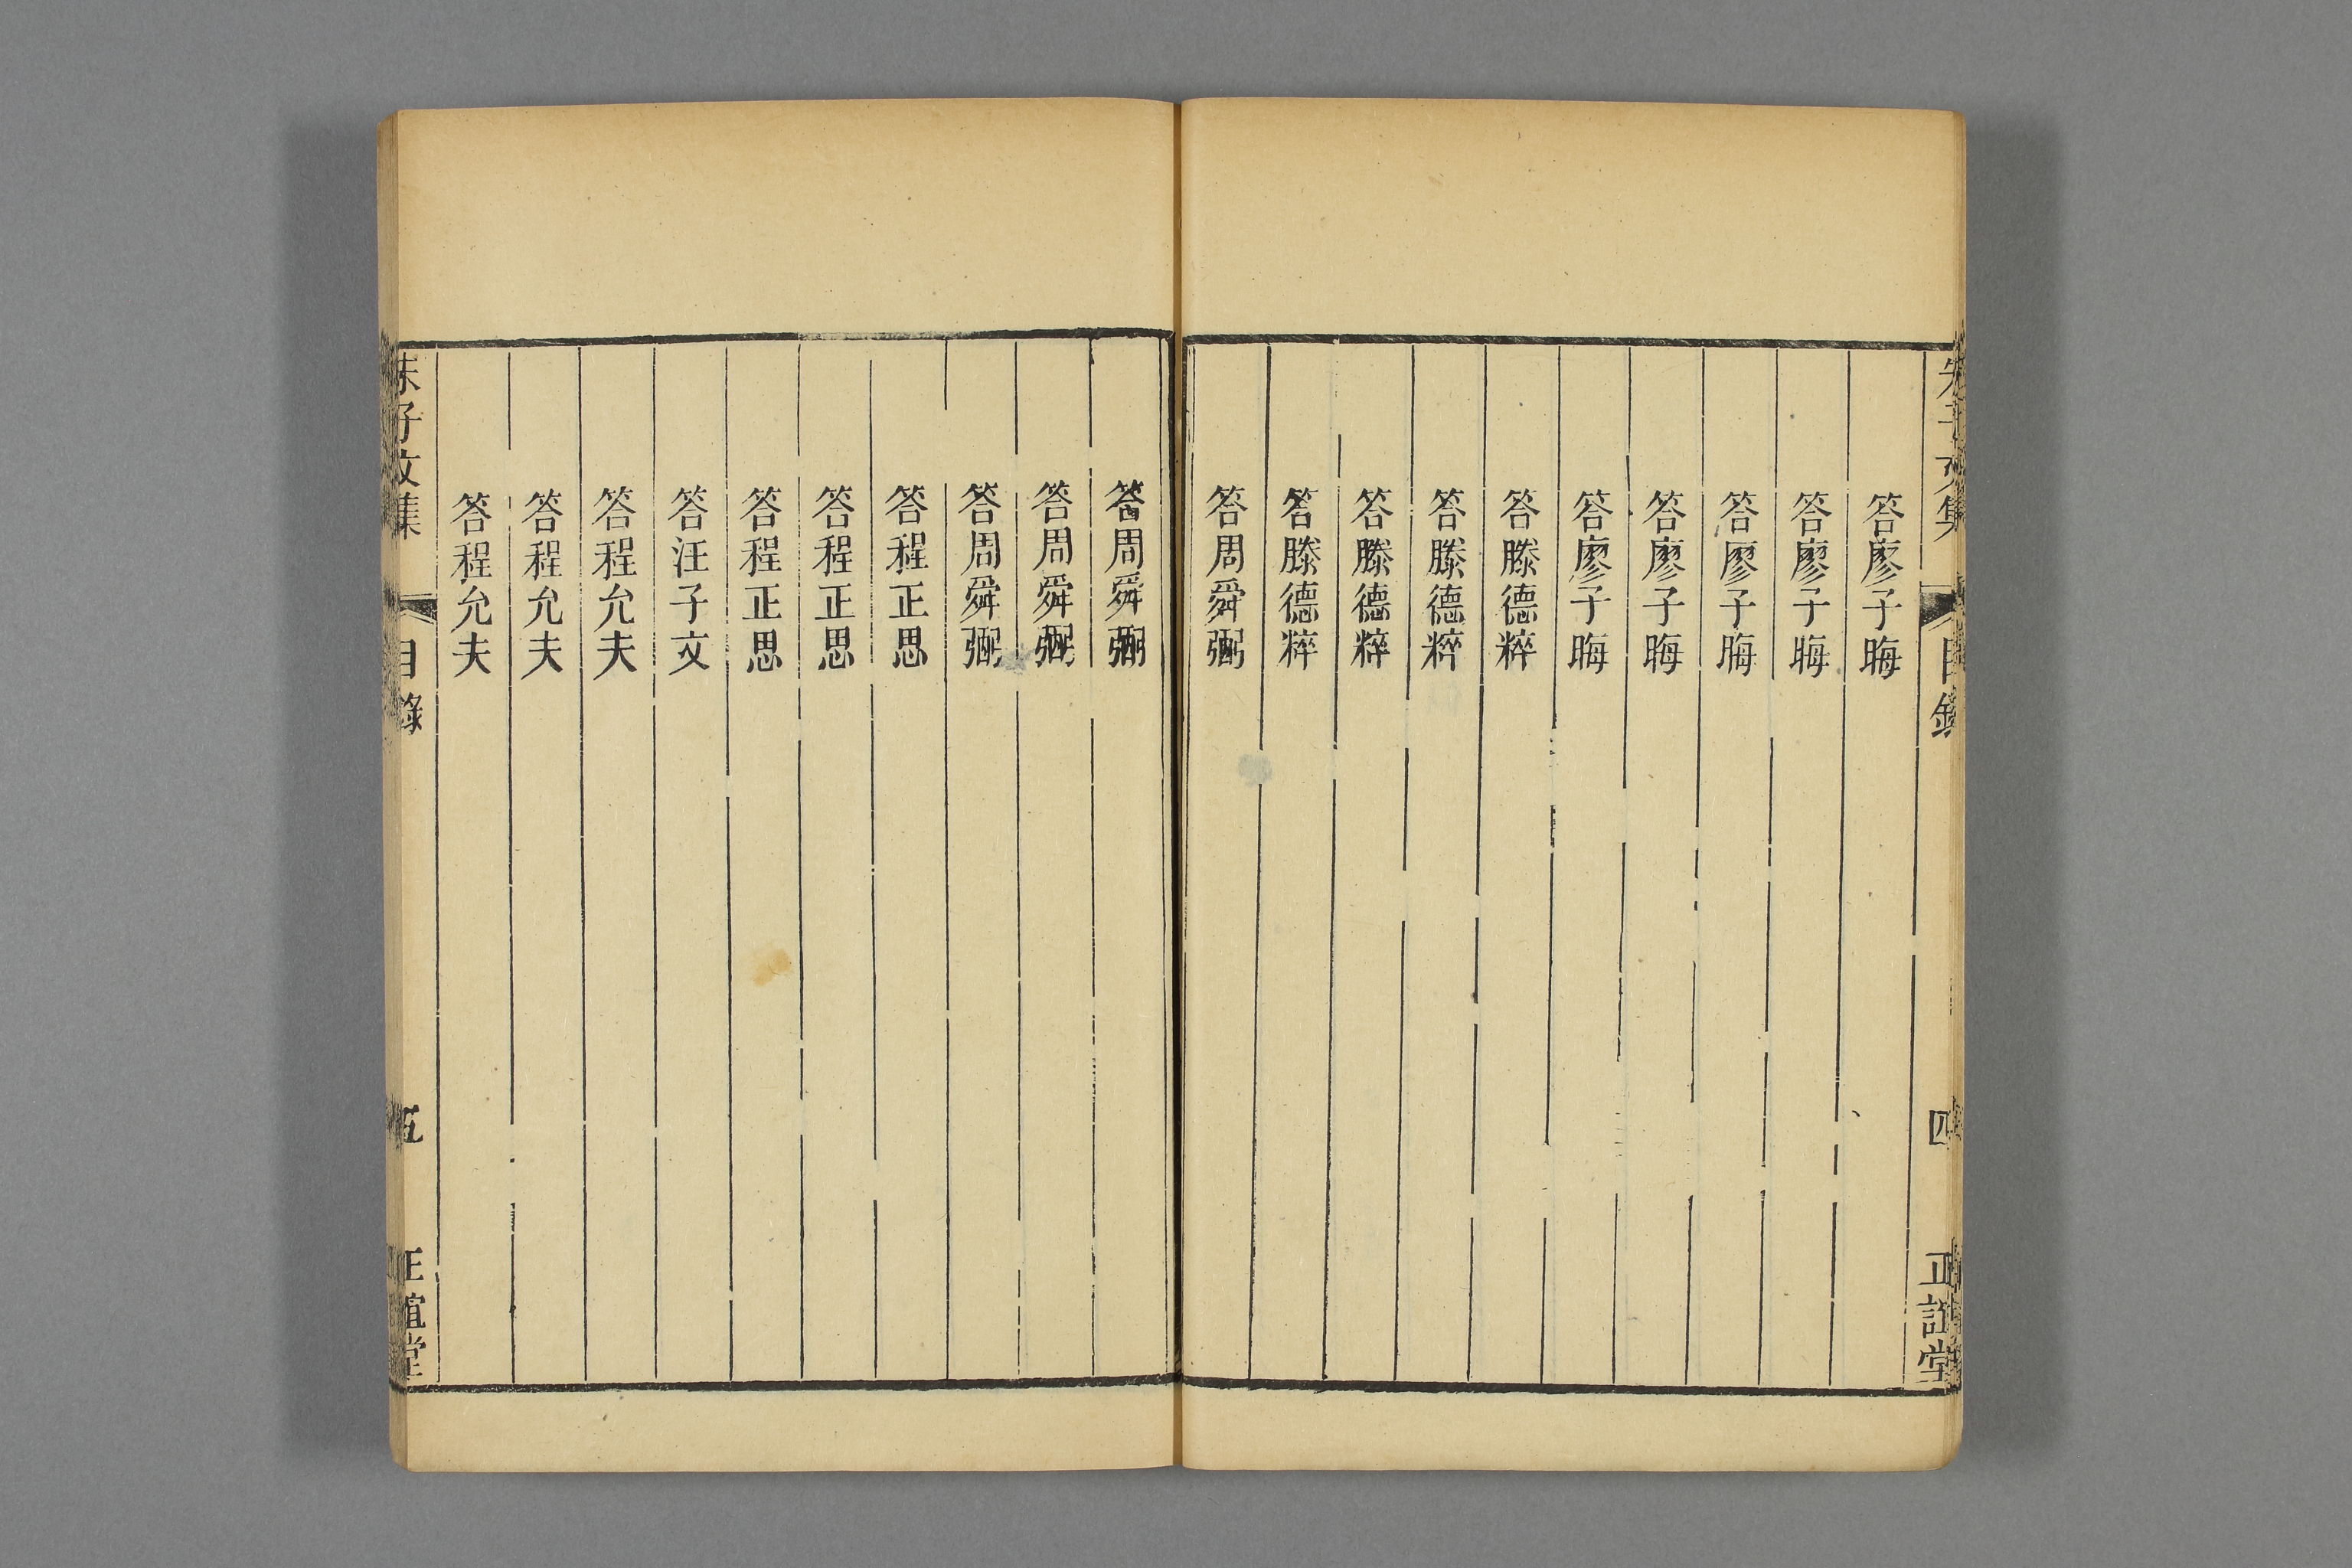 朱子文集 目錄 四 正誼堂
答廖子晦
答廖子晦
答廖子晦
答廖子晦
答廖子晦
答滕德粹
答滕德粹
答滕德粹
答滕德粹
答周舜弼
答周舜弼
答周舜弼
答周舜弼
答程正思
答程正思
答程正思
答汪子文
答程允夫
答程允夫
答程允夫
朱子文集 目錄 五 正誼堂